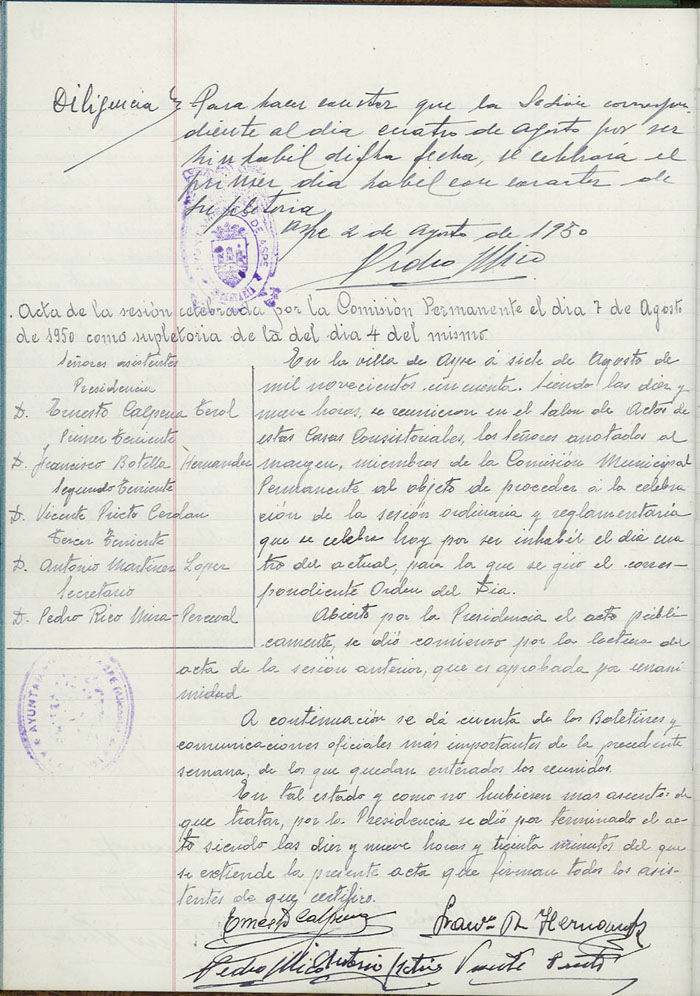 Diligencia Para hacer constar que la Sesión correspon-
diente al dia cuatro de agosto por ser
inhabil dicha fecha, se celebrará el
primer dia habil con caracter de
supletoria
Aspe 2 de agosto de 1950
Pedro Rico
AYUNTAMIENTO DE ASPE
. Acta de la sesión celebrada por la Comisión Permanente el dia 7 de Agosto
de 1950 como supletoria de la del dia 4 del mismo.
Señores asistentes
Presidencia
D. Ernesto Calpena Terol
Primer Teniente
D. Francisco Botella Hernandez
Segundo Teniente
D. Vicente Prieto Cerdan
Tercer Teniente
D. Antonio Martinez Lopez
Secretario
D. Pedro Rico Mira-Perceval
En la villa de Aspe á siete de Agosto de
mil novecientos cincuenta. Siendo las diez y
nueve horas, se reunieron en el Salon de Actos de
estas Casas Consistoriales, los Señores anotados al
margen, miembros de la Comisión Municipal
Permanente al objeto de proceder á la celebra-
ción de la sesión ordinaria y reglamentaria
que se celebra hoy por ser inhabil el dia cua
tro del actual, para la que se giró el corres-
pondiente Orden del Dia.
Abierto por la Presidencia el acto públi-
camente, se dió comienzo por la lectura del
acta de la sesión anterior, que es aprobada por unani
midad
A continuación se dá cuenta de los Boletines y
comunicaciones oficiales más importantes de la precedente
semana, de los que quedan enterados los reunidos.
En tal estado y como no hubiesen mas asuntos de
que tratar, por la Presidencia se dió por terminado el ac-
to siendo las diez y nueve horas y treinta minutos del que
se extiende la presente acta que firman todos los asis-
tentes de que certifico.
Ernesto Calpena Franco B. Hernandez
Pedro Rico Antonio Vicente Prieto